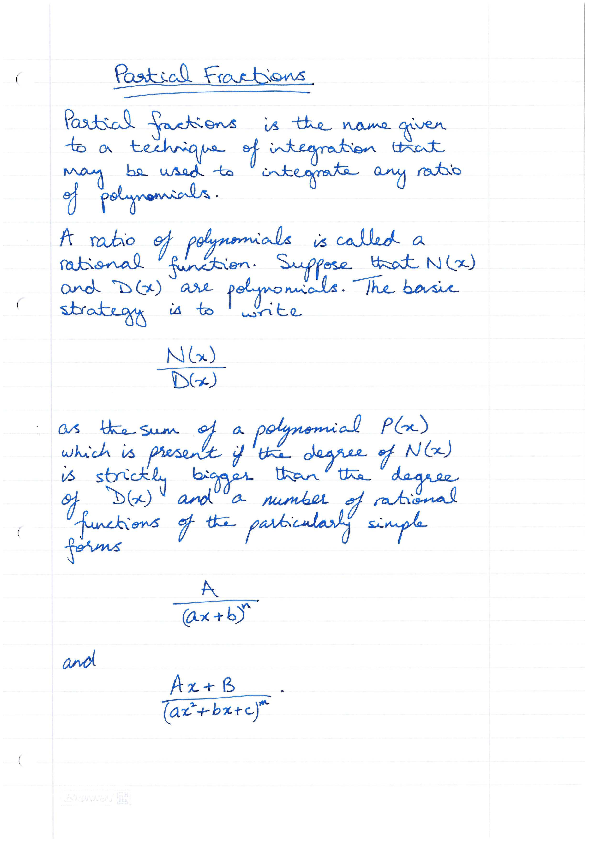 Partial Fractions
Partial factions is the name given
to a technique of integration that
may be used to integrate any ratio
of polynomials.
A ratio of polynomials is called a
rational function. Suppose that N(x)
and D(x) are polynomials. The basic
strategy is to write
N(x)
D(x)
as the sum of a polynomial P(x)
which is present if the degree of N(x)
is strictly bigger than the degree
of D(x) and a number of rational
functions of the particularly simple
forms
A
(ax+b)ⁿ
and
Ax + B
(ax²+bx+c)ᵐ.